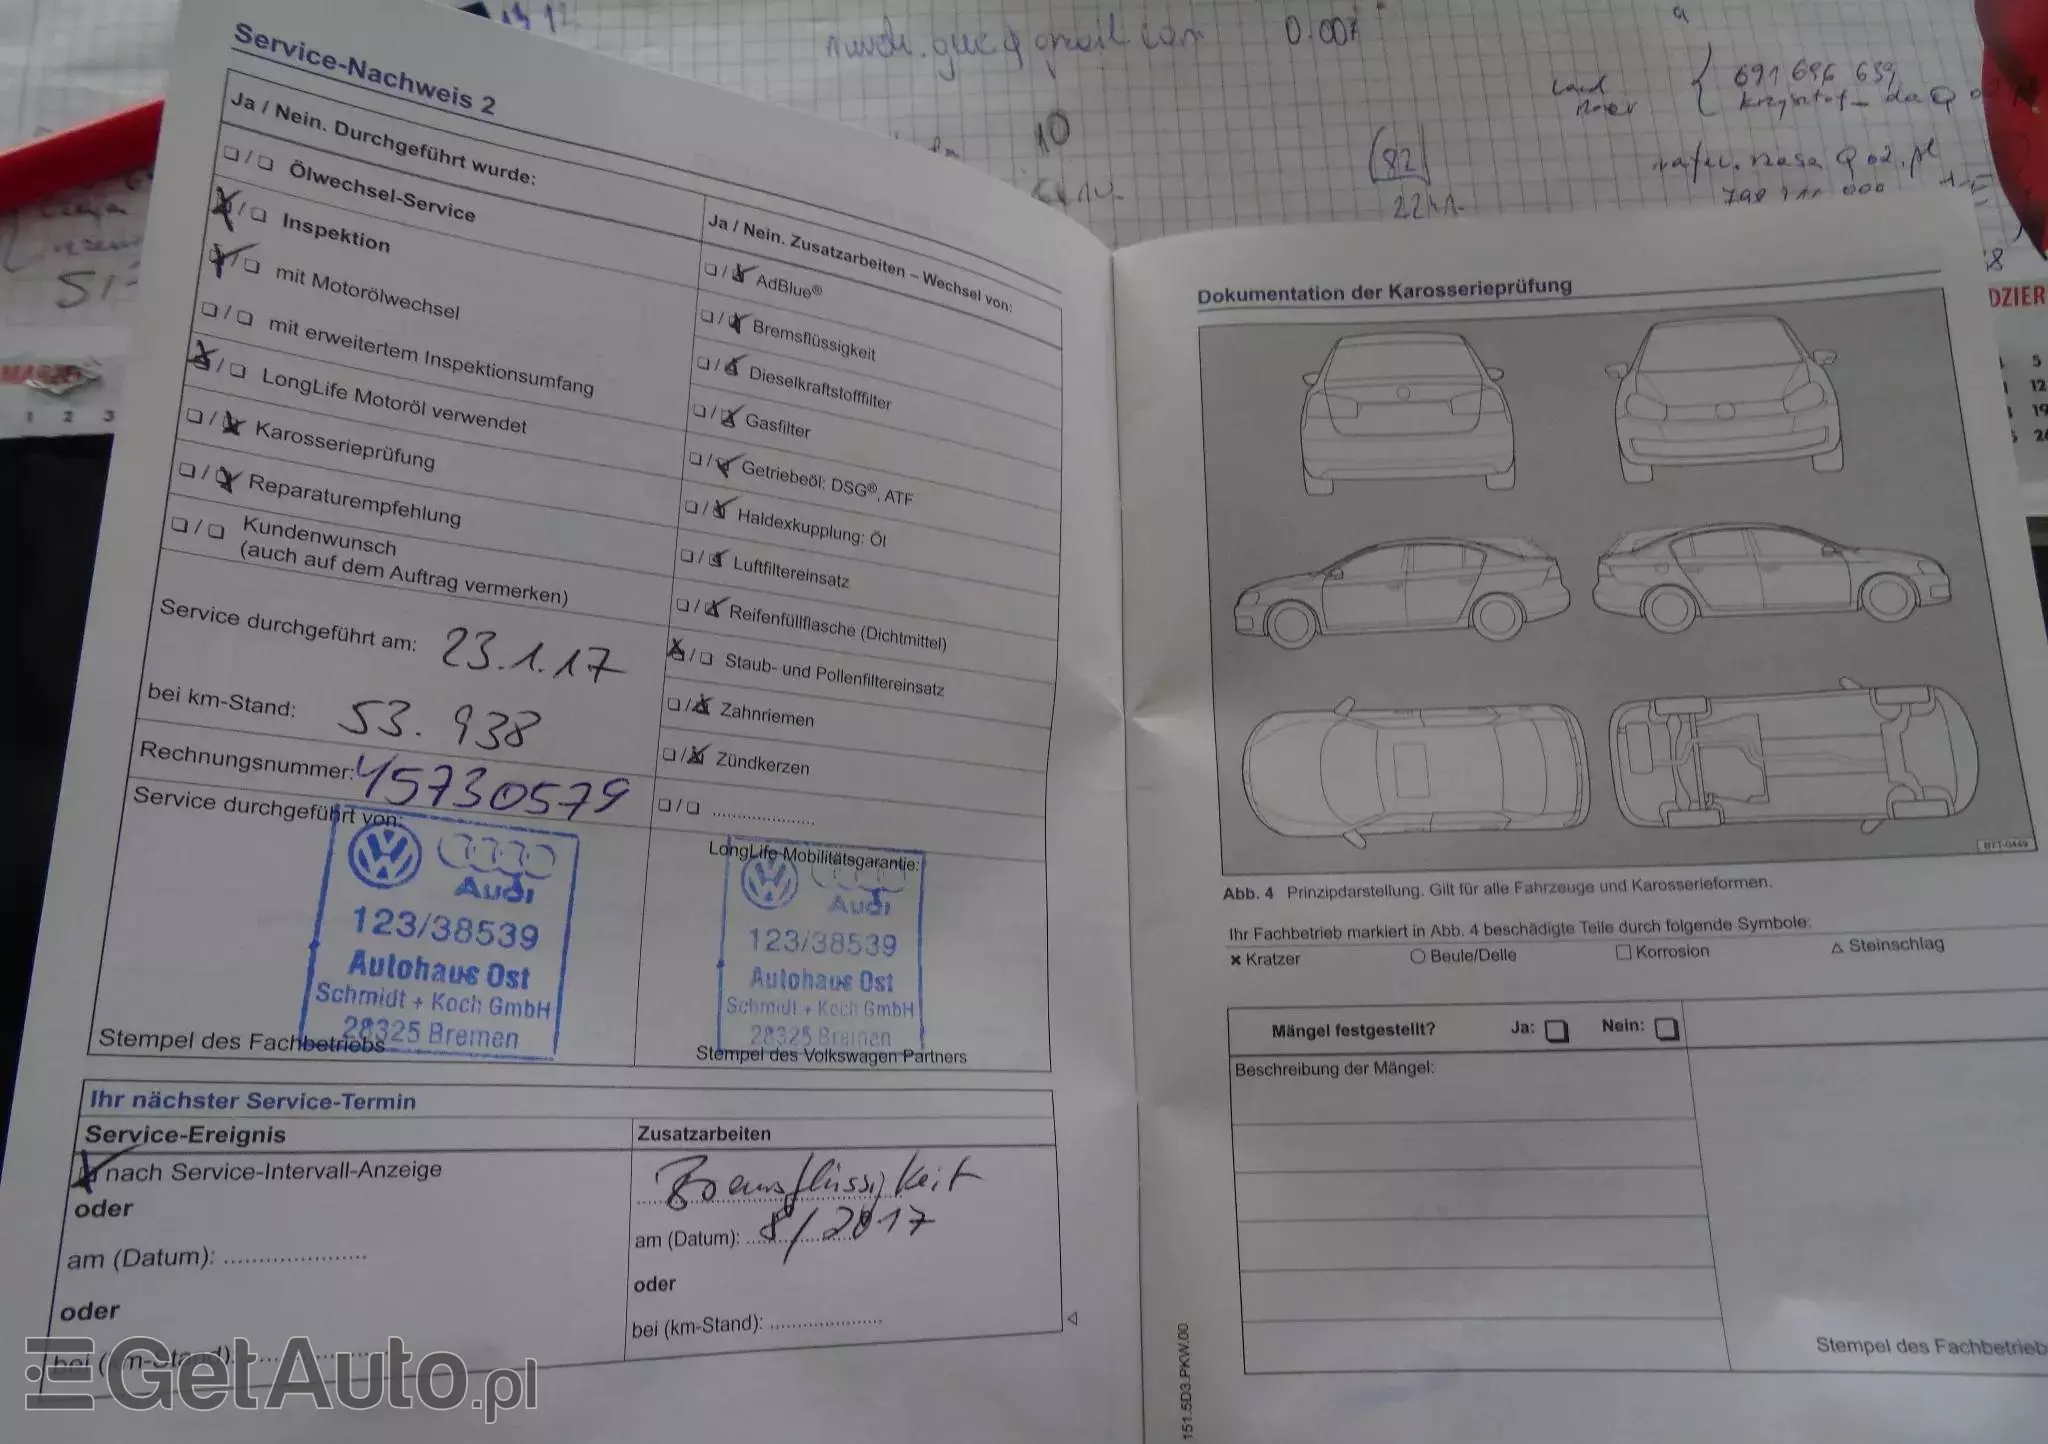 0.007
10
691 696 639
82
798 111 000
MARZEC
1 2 3
DZIER
5
12
19
Service-Nachweis 2
Ja / Nein. Durchgeführt wurde:
❏ / ❏ Ölwechsel-Service
❏ / ❏ Inspektion
❏ / ❏ mit Motorölwechsel
❏ / ❏ mit erweitertem Inspektionsumfang
❏ / ❏ LongLife Motoröl verwendet
❏ / ❏ Karosserieprüfung
❏ / ❏ Reparaturempfehlung
❏ / ❏ Kundenwunsch
(auch auf dem Auftrag vermerken)
Service durchgeführt am: 23.1.17
bei km-Stand: 53.938
Rechnungsnummer: 45730579
Service durchgeführt von:
Audi
123/38539
Autohaus Ost
Schmidt + Koch GmbH
28325 Bremen
Stempel des Fachbetriebs
Ja / Nein. Zusatzarbeiten – Wechsel von:
❏ / ❏ AdBlue®
❏ / ❏ Bremsflüssigkeit
❏ / ❏ Dieselkraftstofffilter
❏ / ❏ Gasfilter
❏ / ❏ Getriebeöl: DSG®, ATF
❏ / ❏ Haldexkupplung: Öl
❏ / ❏ Luftfiltereinsatz
❏ / ❏ Reifenfüllflasche (Dichtmittel)
❏ / ❏ Staub- und Pollenfiltereinsatz
❏ / ❏ Zahnriemen
❏ / ❏ Zündkerzen
❏ / ❏ ......................
LongLife Mobilitätsgarantie:
Audi
123/38539
Autohaus Ost
Schmidt + Koch GmbH
28325 Bremen
Stempel des Volkswagen Partners
Ihr nächster Service-Termin
Service-Ereignis
❏ nach Service-Intervall-Anzeige
oder
am (Datum): .....................
oder
bei (km-Stand): .....................
Zusatzarbeiten
Bremsflüssigkeit
am (Datum): 8/2017
oder
bei (km-Stand): .....................
Dokumentation der Karosserieprüfung
B7T-0449
Abb. 4 Prinzipdarstellung. Gilt für alle Fahrzeuge und Karosserieformen.
Ihr Fachbetrieb markiert in Abb. 4 beschädigte Teile durch folgende Symbole:
✖ Kratzer ○ Beule/Delle □ Korrosion △ Steinschlag
Mängel festgestellt? Ja: ❏ Nein: ❏
Beschreibung der Mängel:
Stempel des Fachbetrieb
151.5D3.PKW.00
GetAuto.pl